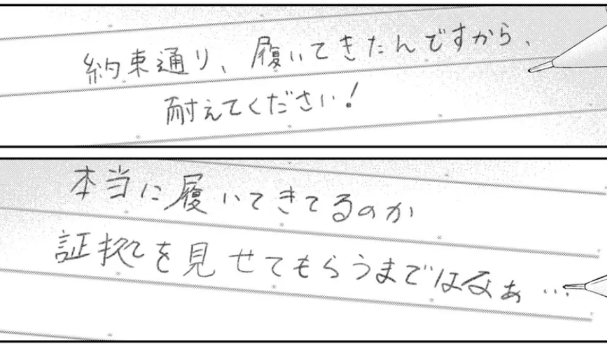 約束通り、履いてきたんですから、
耐えてください！
本当に履いてきてるのか
証拠を見せてもらうまではなぁ…